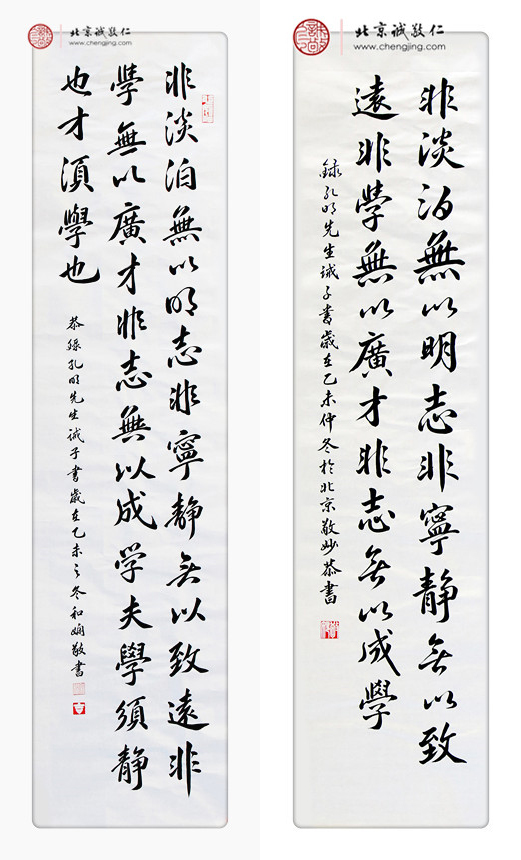 北京诚敬仁
www.chengjing.com
非淡泊無以明志非寧静无以致遠非
學無以廣才非志無以成学夫學須静
也才須學也
恭録孔明先生诫子書歲在乙未之冬和娴敬書
北京诚敬仁
www.chengjing.com
非淡泊無以明志非寧静无以致
遠非学無以廣才非志无以成學
録孔明先生诫子書歲在乙未仲冬於北京敬妙恭書